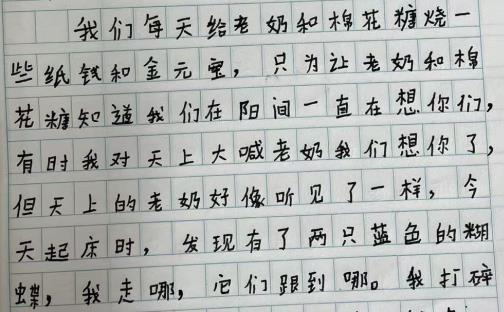 我们每天给老奶和棉花糖烧一
些纸钱和金元宝，只为让老奶和棉
花糖知道我们在阳间一直在想你们，
有时我对天上大喊老奶我们想你了，
但天上的老奶好像听见了一样，今
天起床时，发现有了两只蓝色的糊
蝶，我走哪，它们跟到哪。我打碎